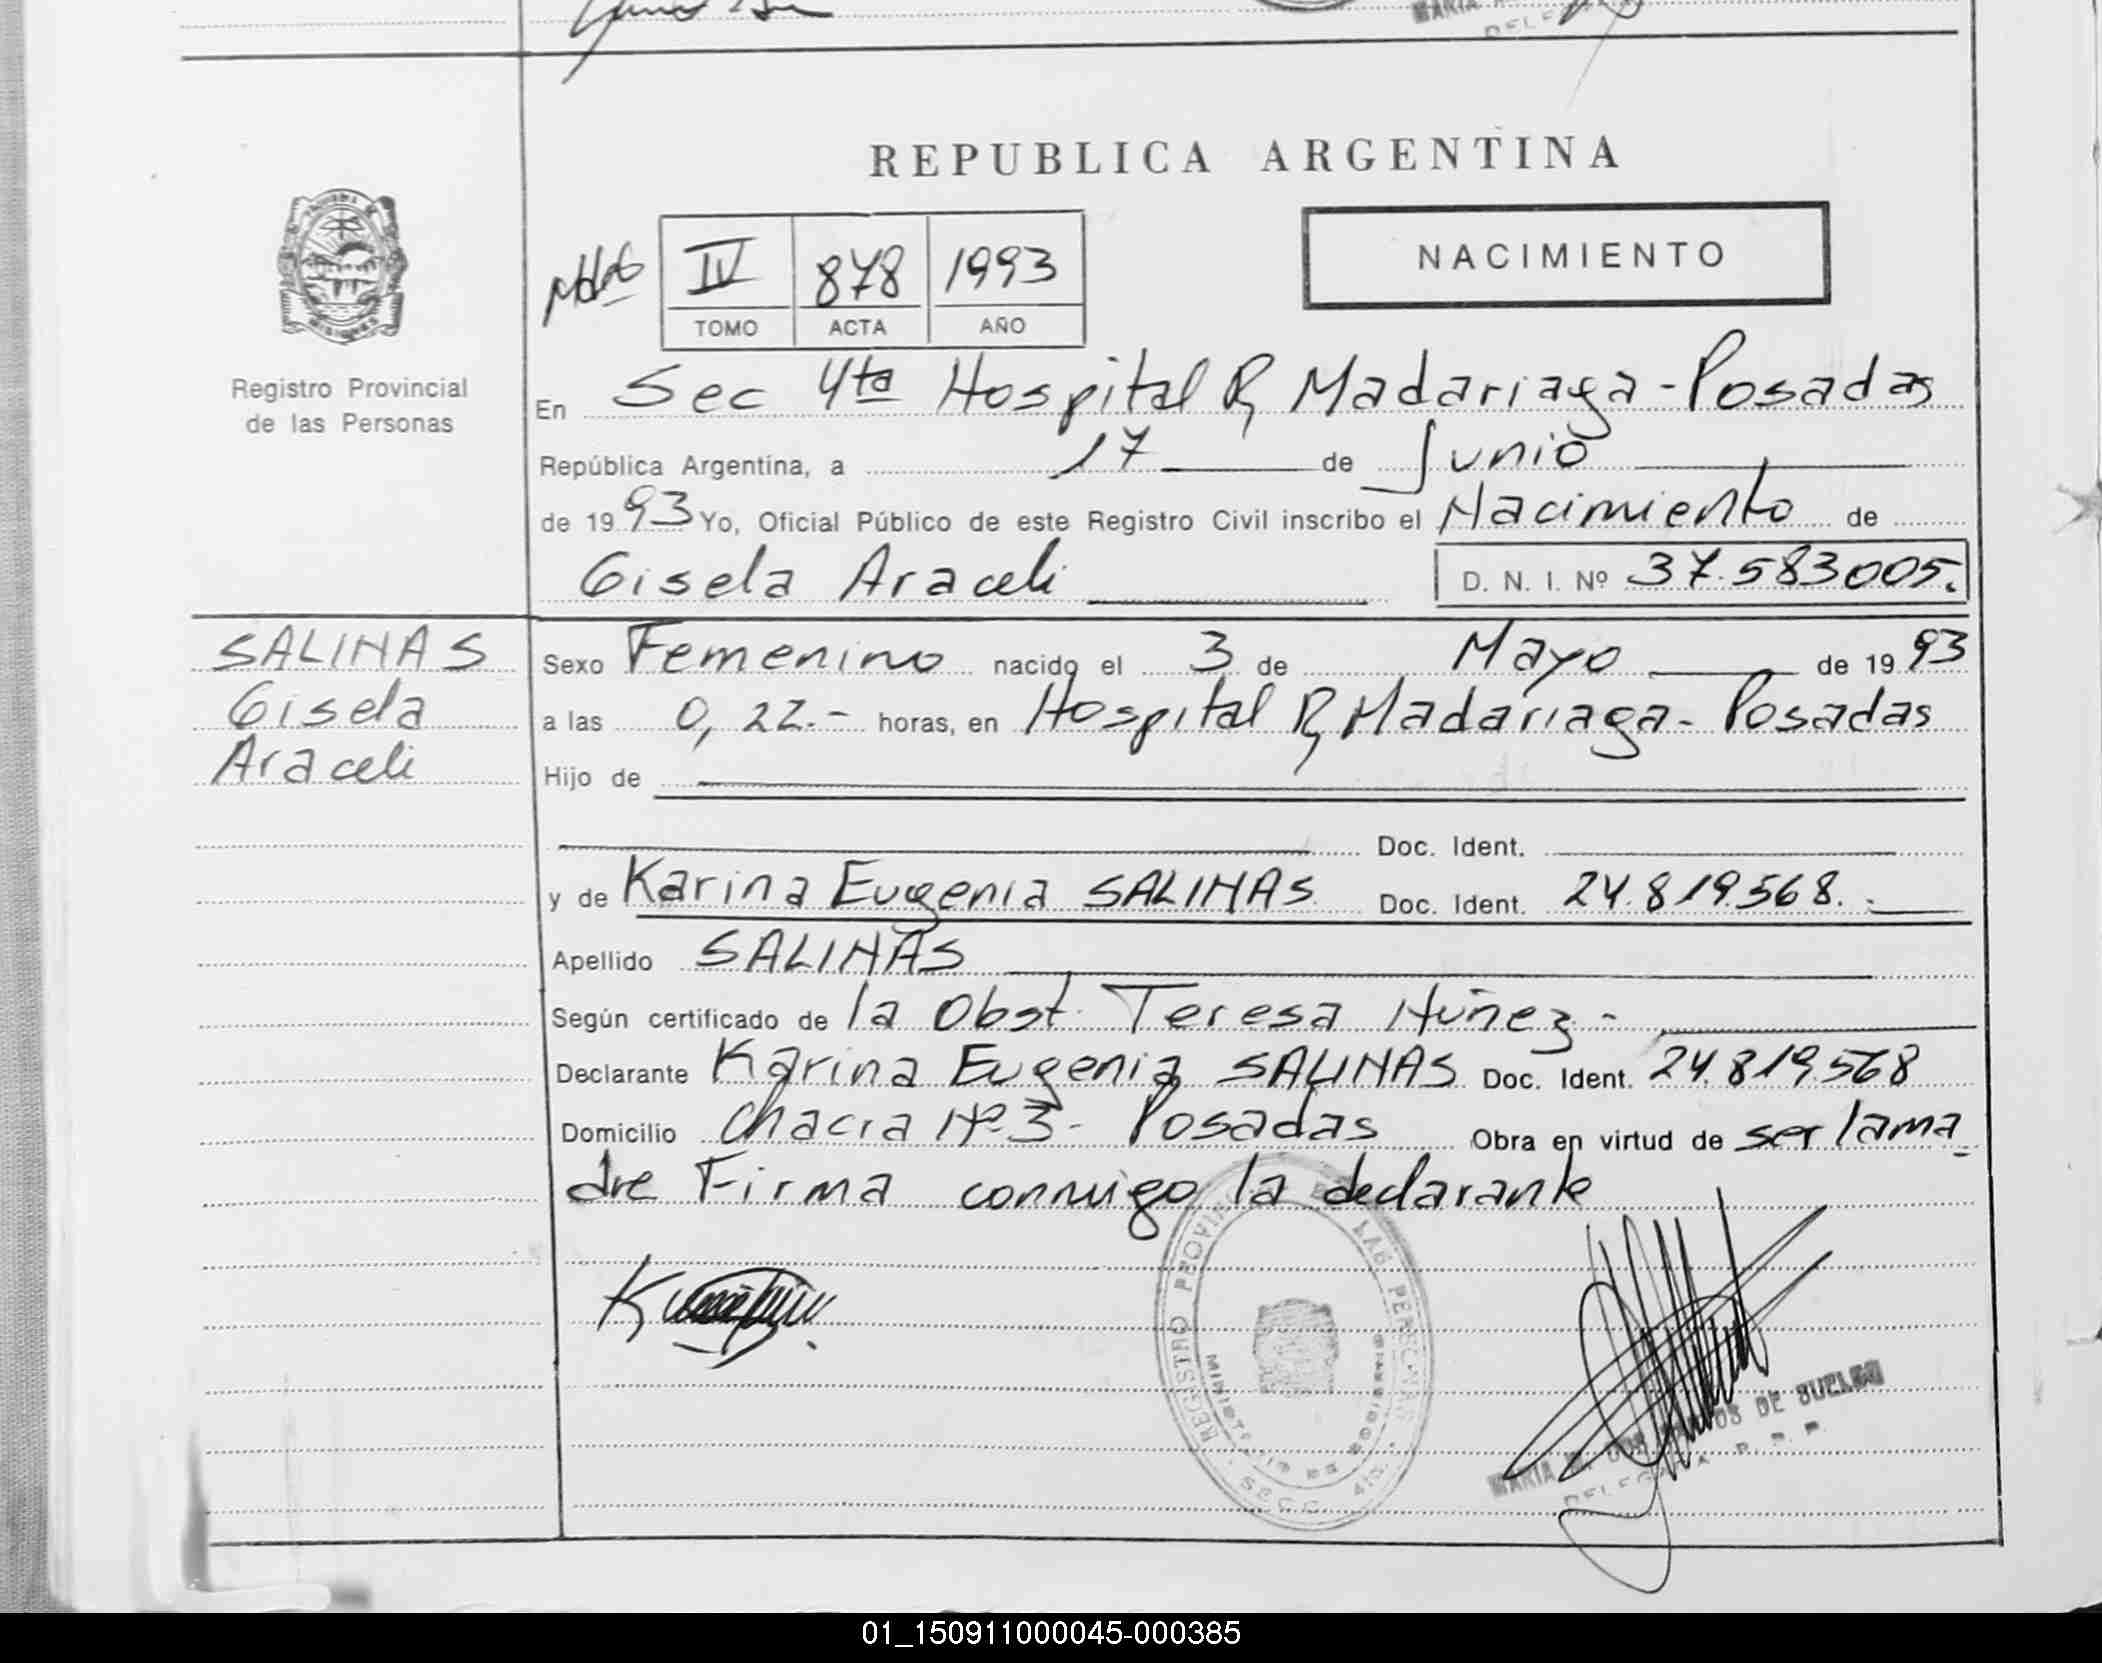 REPUBLICA ARGENTINA
NACIMIENTO
IV 878 1993
TOMO ACTA AÑO
Registro Provincial
de las Personas
En Sec 4ta Hospital R, Madariaga - Posadas
República Argentina, a 17 de Junio
de 1993 Yo, Oficial Público de este Registro Civil inscribo el Nacimiento de
Gisela Araceli D. N. I. Nº 37.583005.
SALINAS
Gisela
Araceli
Sexo Femenino nacido el 3 de Mayo de 1993
a las 0,22.- horas, en Hospital R, Madariaga - Posadas
Hijo de
Doc. Ident.
y de Karina Eugenia SALINAS Doc. Ident. 24.819.568.
Apellido SALINAS
Según certificado de la Obst. Teresa Núñez -
Declarante Karina Eugenia SALINAS Doc. Ident. 24.819.568
Domicilio Chacra Nº 3 - Posadas Obra en virtud de ser la ma
dre Firma conmigo la declarante
REGISTRO PROVINCIAL DE LAS PERSONAS
SECC. 4ta.
MARIA DE
DELEGADA R. P. P.
01_150911000045-000385